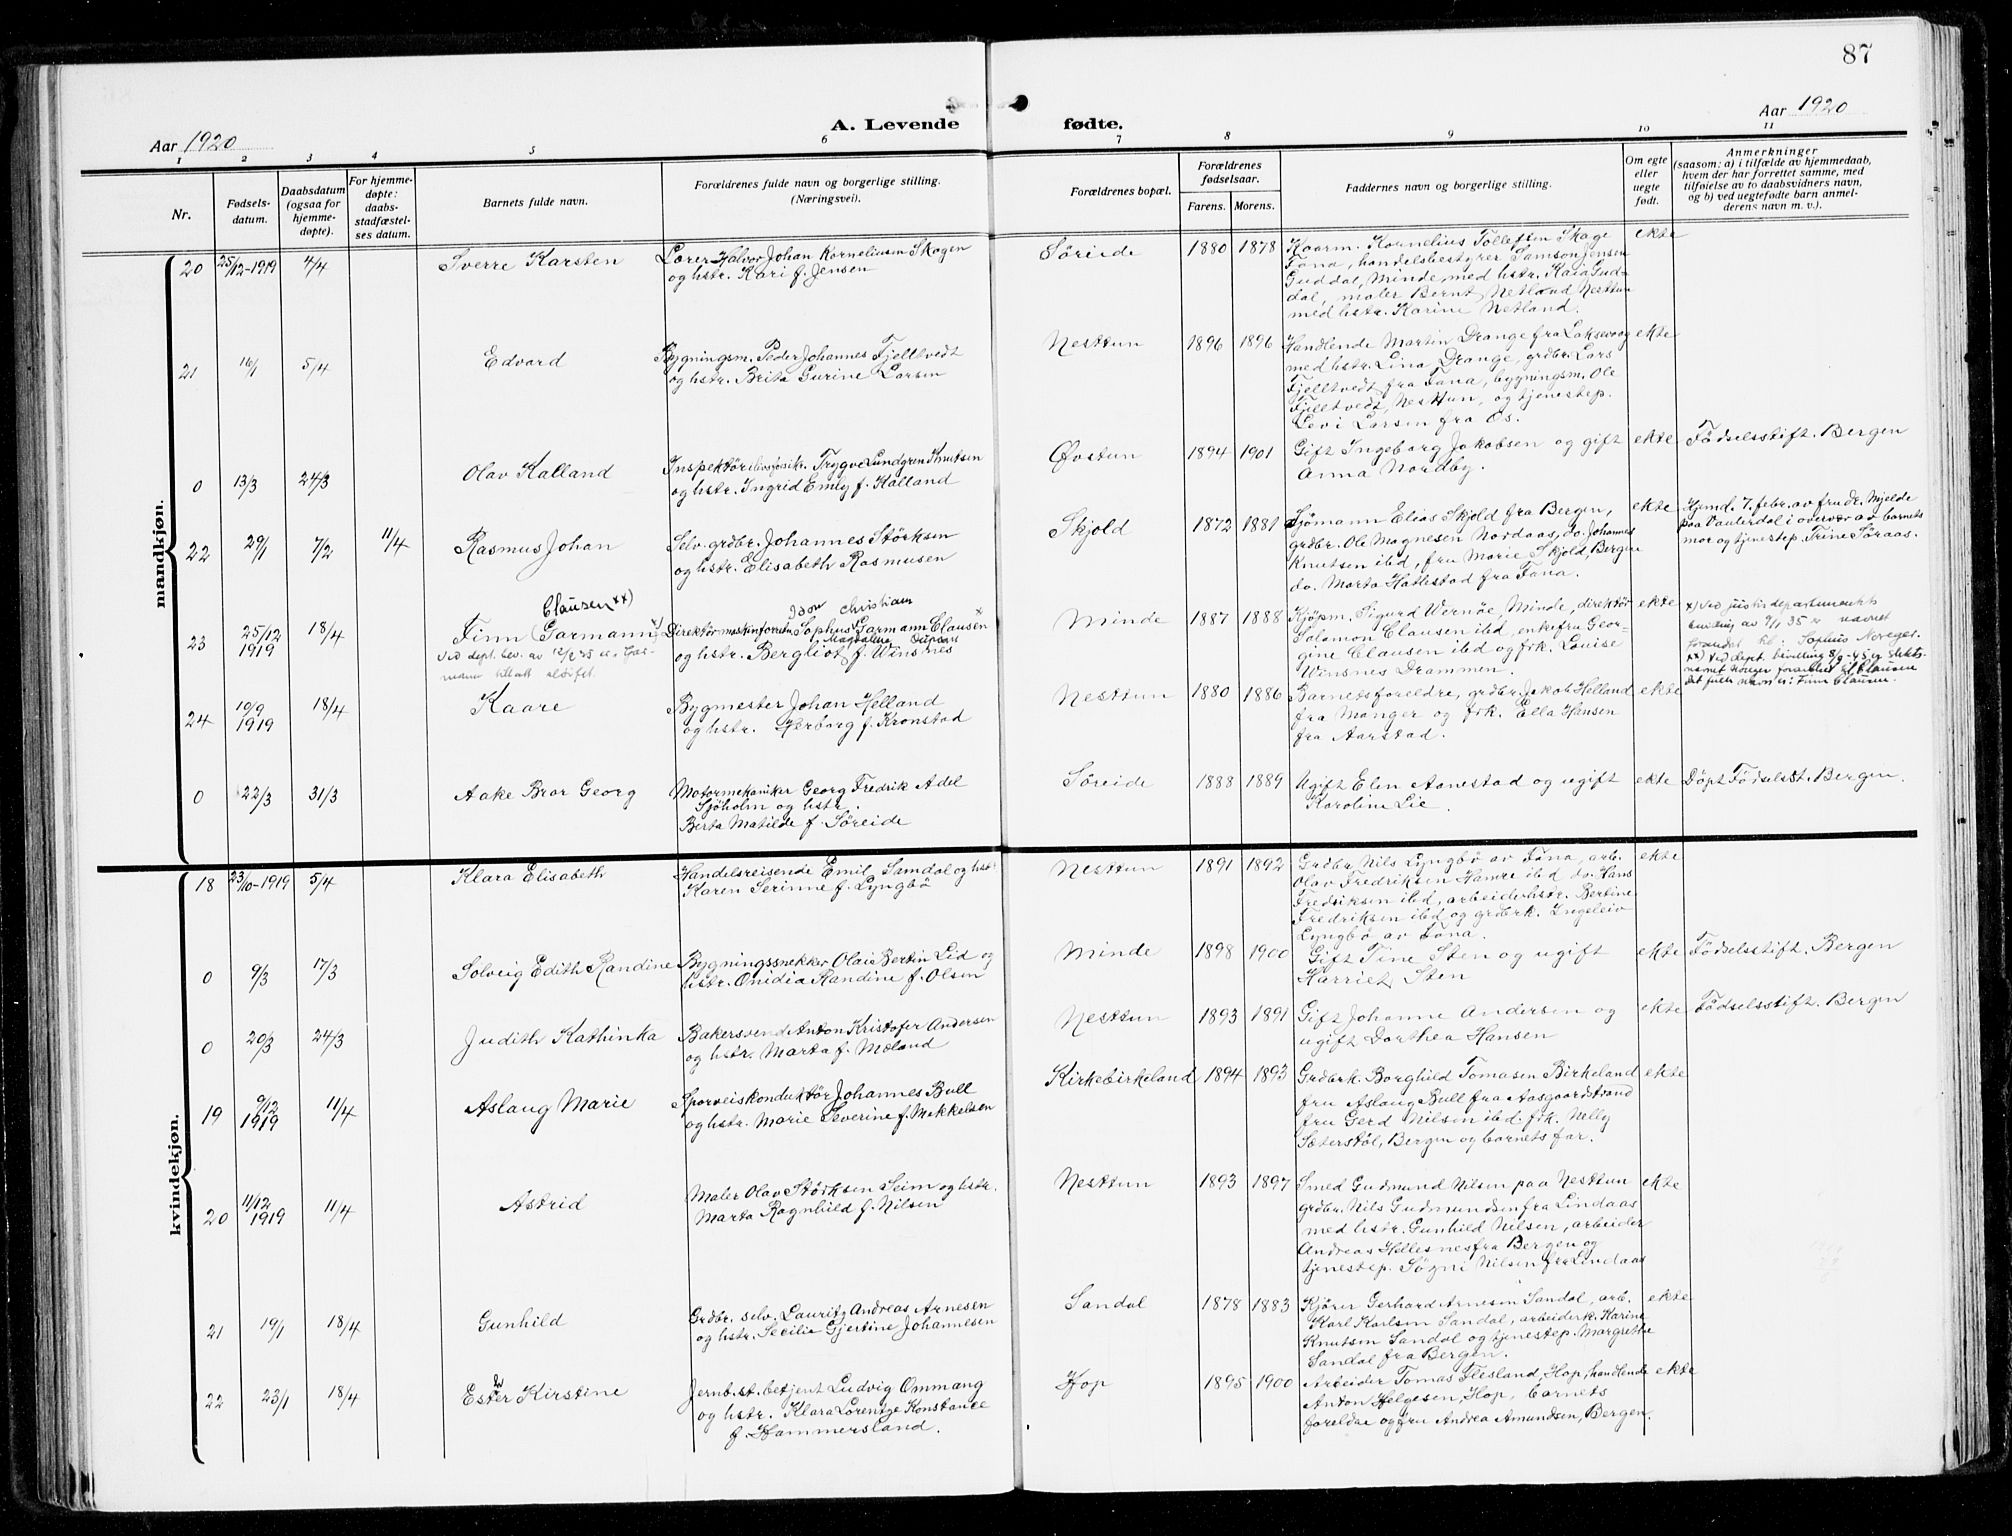 87
Aar 1920
A. Levende fødte.
Aar 1920
1 2 3 4 5 6 7 8 9 10 11
Nr.
Fødsels-
datum.
Daabsdatum
(ogsaa for
hjemme-
døpte).
For hjemme-
døpte:
daabs-
stadfæstel-
ses datum.
Barnets fulde navn.
Forældrenes fulde navn og borgerlige stilling.
(Næringsvei).
Forældrenes bopæl.
Forældrenes
fødselsaar.
Farens. Morens.
Faddernes navn og borgerlige stilling.
Om egte
eller
uegte
født.
Anmerkninger
(saasom: a) i tilfælde av hjemmedaab,
hvem der har forrettet samme, med
tilføielse av to daabsvidners navn,
og b) ved uegtefødte barn anmel-
derens navn m. v.).
mandkjøn.
20 25/12-1919 4/4 Sverre Karsten
Lærer Halvor Johan Korneliusen Skagen
og hstr. Kari f. Jensen
Søreide 1880 1878
Kaarm. Kornelius Tollefsen Skage
Fana, handelsbestyrer Samson Jensen
Guddal, Minde, med hstr. Kaia Gud-
dal, maler Bernt Netland Nesttun
med hstr. Karine Netland.
ekte
21 16/1 5/4 Edvard
Bygningsm. Peder Johannes Fjelltvedt
og hstr. Brita Gurine Larsen
Nesttun 1896 1896
Handlende Martin Drange fra Laksevaag
med hstr. Lina Drange, grdbr. Lars
Fjelltvedt fra Fana, bygningsm. Ole
Fjelltvedt, Nesttun, og tjenestep.
Levi Larsen fra Os.
ekte
0 13/3 24/3 Olav Kalland
Inspektör Trygve Lundgren Knutsen
og hstr. Ingrid Emly f. Kalland
Øvstun 1894 1901
Gift Ingeborg Jakobsen og gift
Anna Nordby.
ekte
Födselsstift. Bergen
22 29/1 7/2 11/4 Rasmus Johan
Selv. grdbr. Johannes Störksen
og hstr. Elisabeth Rasmusen
Skjold 1872 1881
Sjømann Elias Skjold fra Bergen,
grdbr. Ole Magnesen Nordaas, do. Johannes
Knutsen ibd, fru Marie Skjold, Bergen
do. Marta Hatlestad fra Fana.
ekte
Hjemd. 7. febr. av fru dr. Mjelde
paa Vallerdal i overvær av barnets
mor og tjenestep. Trine Søraas.
23 25/12 1919 18/4
Clausen xx)
Finn (Garmann) x)
Ved dept. bev. av 12/2 35 er Gar-
mann tillatt sløifet.
Isow Christian
Direktör maskinforretn. Sophus Garmann Clausen
Magdalena
og hstr. Bergliot f. Winsnes
Minde 1887 1888
Kjöpm. Sigurd Wernöe, Minde, direktör
Salomon Clausen ibd, enkefru Geor-
gine Clausen ibd og frk. Louise
Winsnes Drammen.
ekte
x) Ved justisdepartementets
bevilling av 7/1 35 er navnet
forandret til: Sophus Noreger.
xx) Ved dept. bevilling 8/9-45 er slekts-
navnet Noreger forandret til Clausen
det fulle navn er: Finn Clausen.
24 10/9 1919 18/4 Kaare
Bygmester Johan Helland
og hstr. Herborg f. Kronstad
Nesttun 1880 1886
Barnets foreldre, grdbr. Jakob Helland
fra Manger og frk. Ella Hansen
fra Aarstad.
ekte
0 22/3 31/3 Aake Bror Georg
Motormekaniker Georg Fredrik Adel
Sjöholm og hstr.
Berta Matilde f. Söreide
Söreide 1888 1889
Ugift Elen Aanestad og ugift
Karoline Lie.
ekte
Döpt Födselsst. Bergen.
kvindekjøn.
18 23/10-1919 5/4 Klara Elisabeth
Handelsreisende Emil Samdal og hstr.
Karen Serinne f. Lyngbö
Nesttun 1891 1892
Grdbr. Nils Lyngbö av Fana, arb.
Olav Fredriksen Hamre ibd do. Hans
Fredriksen ibd, arbeiderhstr. Bertine
Fredriksen ibd og grdbrk. Ingeleiv
Lyngbö av Fana.
ekte
0 9/3 17/3 Solveig Edith Randine
Bygningssnekker Olai Bertin Lid og
hstr. Onidia Randine f. Olsen
Minde 1898 1900
Gift Tine Sten og ugift
Harriet Sten
ekte
Födselsstift. Bergen
0 20/3 24/3 Judith Kathinka
Bakersvend Anton Kristofer Andersen
og hstr. Marta f. Mæland
Nesttun 1893 1891
Gift Johanne Andersen og
ugift Dorthea Hansen
ekte
Födselsstift. Bergen
19 9/12 1919 11/4 Aslaug Marie
Sporveiskonduktör Johannes Bull
og hstr. Marie Severine f. Mikkelsen
Kirkebirkeland 1894 1893
Grdbrk. Borghild Tomasen Birkeland
fru Aslaug Bull fra Aasgaardstrand
fru Gerd Nilsen ibd. frk. Nelly
Sæterstöl, Bergen og barnets far.
ekte
20 11/12 1919 11/4 Astrid
Maler Olav Störksen Seim og hstr.
Marta Ragnhild f. Nilsen
Nesttun 1893 1897
Smed Gudmund Nilsen paa Nesttun
grdbr. Nils Gudmundsen fra Lindaas
med hstr. Gunhild Nilsen, arbeider
Andreas Hellesnes fra Bergen og
tjenestep. Sögni Nilsen fra Lindaas
ekte
21 19/1 18/4 Gunhild
Grdbr. selv. Lauritz Andreas Arnesen
og hstr. Secilie Gjertine Johannesen
Sandal 1878 1883
Kjörer Gerhard Arnesen Sandal, arb.
Karl Karlsen Sandal, arbeiderk. Karine
Knutsen Sandal og tjenestep. Margrethe
Sandal fra Bergen.
ekte
22 23/1 18/4 Ester Kirstine
Jernb.st. betjent Ludvig Ommang
og hstr. Klara Lorentze Konstance
f. Hammersland.
Hop 1895 1900
Arbeider Tomas Flesland, Hop, handlende
Anton Helgesen, Hop, barnets
foreldre og fru Andrea Amundsen, Bergen.
ekte